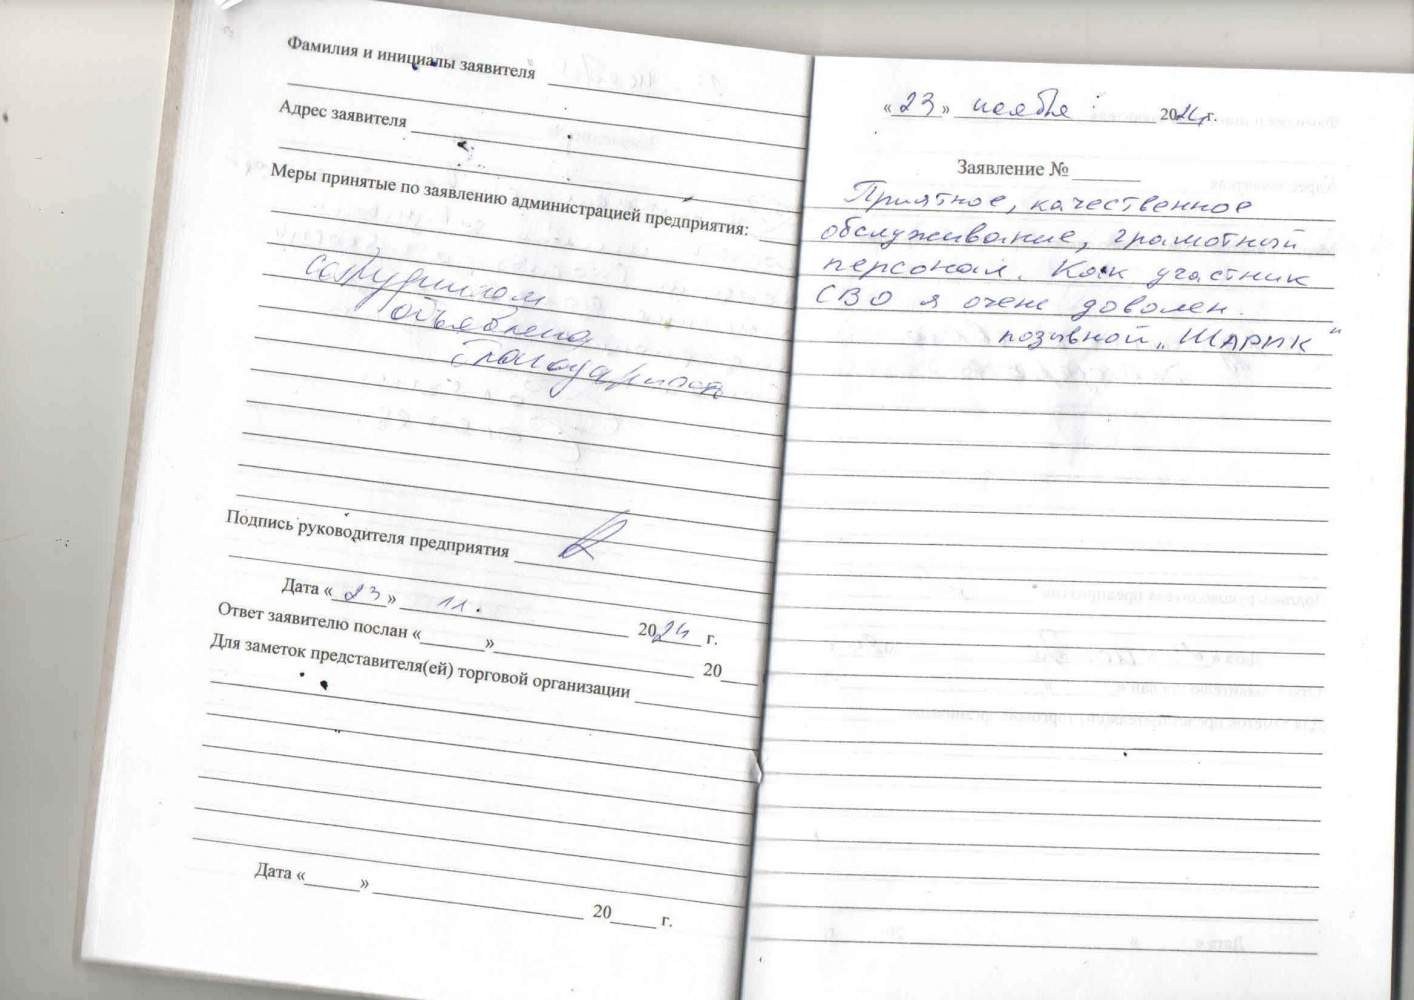 Фамилия и инициалы заявителя
Адрес заявителя
Меры принятые по заявлению администрацией предприятия:
сотрудникам
объявлена
благодарность
Подпись руководителя предприятия
Дата «23» 11. 2024 г.
Ответ заявителю послан «____»____ 20__
Для заметок представителя(ей) торговой организации
Дата «____» ____ 20__ г.
«23» ноября 2024г.
Заявление № ____
Приятное, качественное
обслуживание, грамотный
персонал. Как участник
СВО я очень доволен.
позывной „ШАРИК"